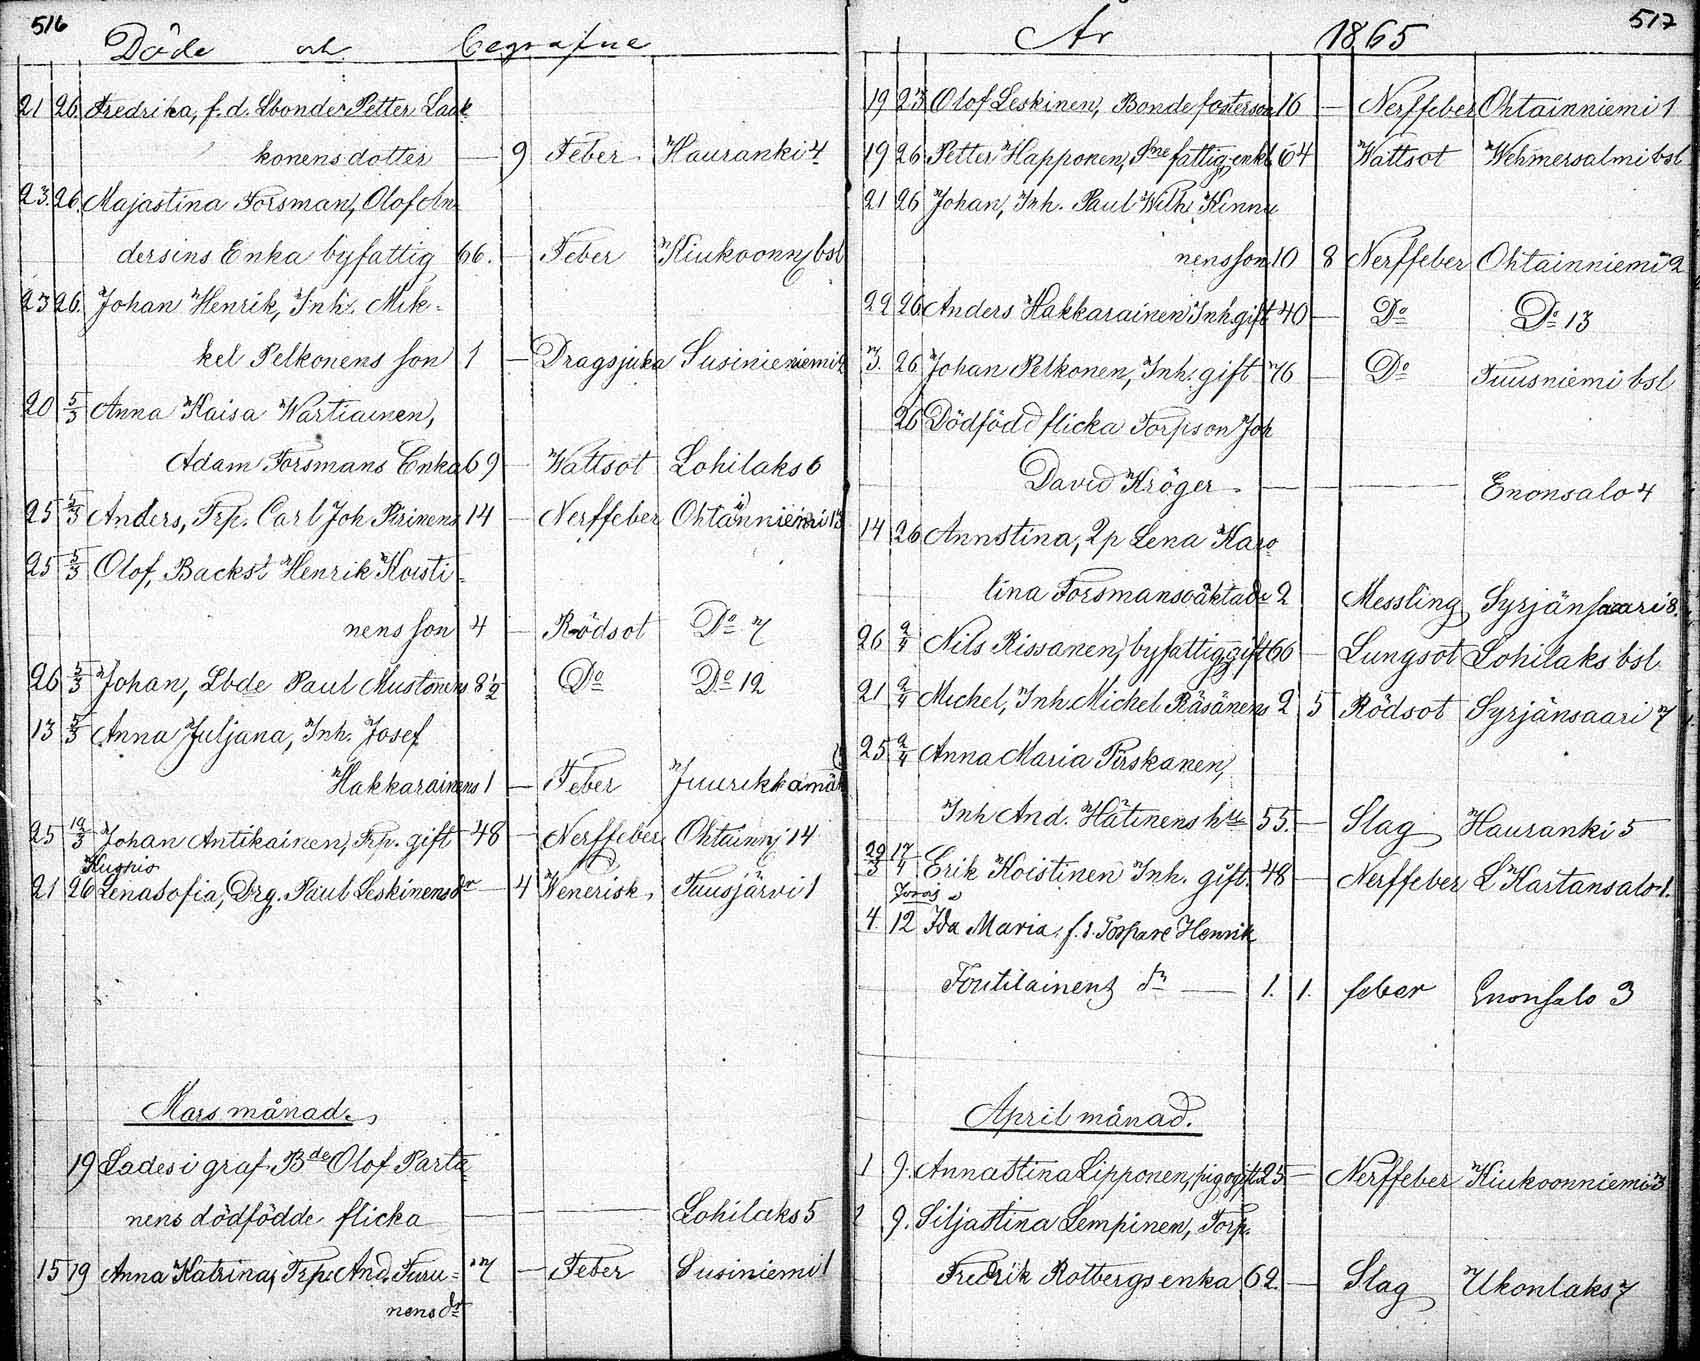 516
Döde och begrafne
21 26. Fredrika, f. d. Lbonder Petter Laak
konens dotter — 9 Feber Hauranki 4
23. 26. Majastina Forsman, Olof An
dersins Enka byfattig 66. — Feber Kiukoonny bsl
23 26. Johan Henrik, Inh. Mik-
kel Pelkonens son 1 — Dragsjuka Susinieniemi 2
20 5/3 Anna Kaisa Wartiainen,
Adam Forsmans Enka 69 — Wattsot Lohilaks 6
25 5/3 Anders, Trp. Carl Joh Pirinens 14 — Nerffeber Ohtainniemi 13
25 5/3 Olof, Backst Henrik Koisti-
nens son 4 — Rödsot Do 7
26 5/3 Johan, Lbde Paul Mustonens 8 1/2 Do Do 12
13 5/3 Anna Juljana, Inh. Josef
Hakkarainens 1 — Feber Juurikkamäki
25 19/3 Johan Antikainen, Trp. gift 48 — Nerffeber Ohtainny 14
Kuopio
21 26 Lenasofia, Drg. Paul Leskinens dr — 4 Wenerisk. Tuusjärvi 1
Mars månad.
19 Lades i graf. Bde Olof Parta
nens dödfödde flicka — — Lohilaks 5
15 19 Anna Katrina, Trp. And. Turu= 7 — Feber Susiniemi 1
nens dr
517
År 1865
19 23 Olof Leskinen, Bonde fosterson 16 — Nerffeber Ohtainniemi 1
19 26 Petter Happonen, Sne fattig, enkl 64 Wattsot Wehmersalmi bsl
21 26 Johan, Inh. Paul Wilh. Kinnu
nens son 10 8 Nerffeber Ohtainniemi 2
22 26 Anders Hakkarainen Inh gift 40 — Do Do 13
7. 26 Johan Pelkonen, Inh. gift 76 — Do Tuusniemi bsl
26 Dödfödd flicka Torpson Joh
David Kröger — — — Enonsalo 4
14 26 Annstina, 2p Lena Karo
lina Forsmans oäktade 2 Messling Syrjänsaari 8.
26 2/4 Nils Rissanen, byfattig gift 66 — Lungsot Lohilaks bsl
21 2/4 Michel, Inh. Michel Räsänens 2 5 Rödsot Syrjänsaari 7
25 2/4 Anna Maria Pirskanen,
Inh And. Hätinens hu 55. — Slag Hauranki 5
29/3 17/4 Erik Koistinen Inh. gift. 48 — Nerffeber L Kartansalo 1.
4. 12 Ida Maria, f. d. Torpare Henrik
Toutilainens dr — 1. 1. feber Enonsalo 3
April månad.
1 9. Annastina Lipponen, pig ogift 25 — Nerffeber Kiukoonniemi 3
2 9. Siljastina Lempinen, Torp.
Fredrik Rotbergs enka 62. — Slag Ukonlaks 7